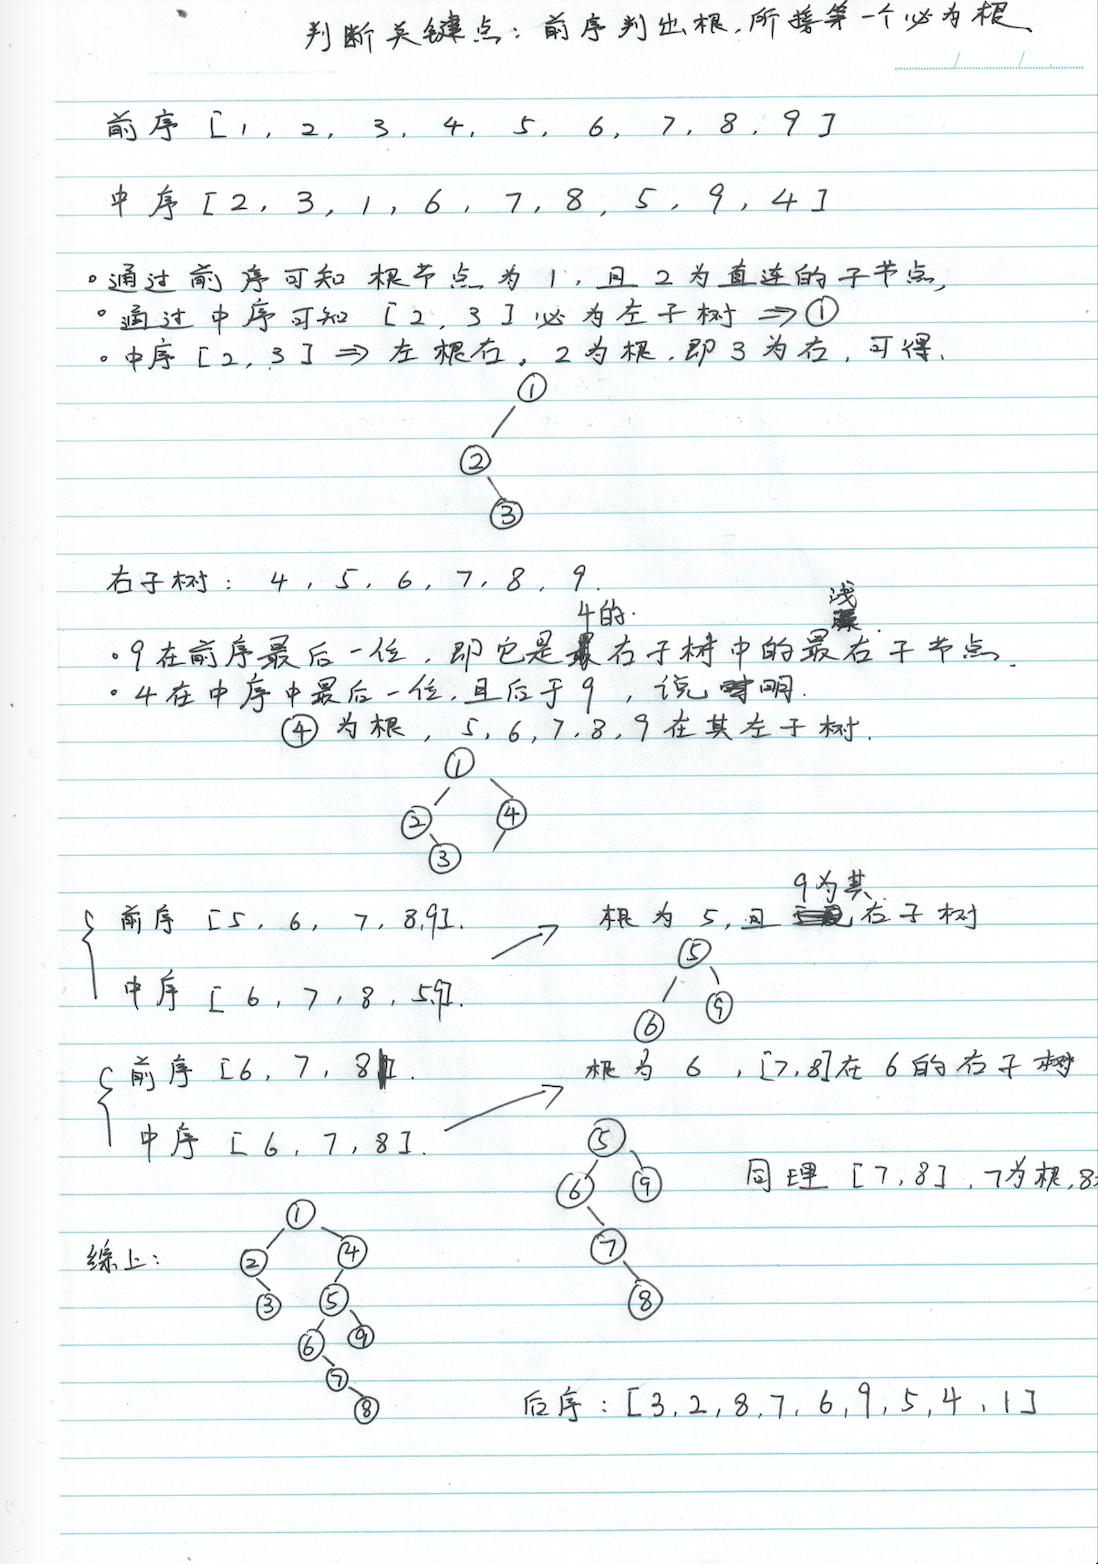 判断关键点：前序判出根.所接第一个必为根.
前序 [1, 2, 3, 4, 5, 6, 7, 8, 9]
中序 [2, 3, 1, 6, 7, 8, 5, 9, 4]
。通过前序可知根节点为1,且2为直连的子节点,
。通过中序可知 [2, 3] 必为左子树 ⇒ ①
。中序 [2, 3] ⇒ 左根右。2为根.即3为右,可得.
①
②
③
右子树: 4, 5, 6, 7, 8, 9.
4的. 浅
·9在前序最后一位,即它是右子树中的最右子节点.
·4在中序中最后一位,且后于9,说明.
④为根, 5, 6, 7, 8, 9在其左子树.
①
② ④
③
9为其
前序 [5, 6, 7, 8, 9]. 根为5,且右子树
⑤
中序 [6, 7, 8, 5, 9].
⑥ ⑨
前序 [6, 7, 8]. 根为6, [7,8]在6的右子树
中序 [6, 7, 8].
⑤
⑥ ⑨ 同理 [7,8], 7为根,8
⑦
⑧
综上:
①
② ④
③ ⑤
⑥ ⑨
⑦
⑧
后序: [3, 2, 8, 7, 6, 9, 5, 4, 1]